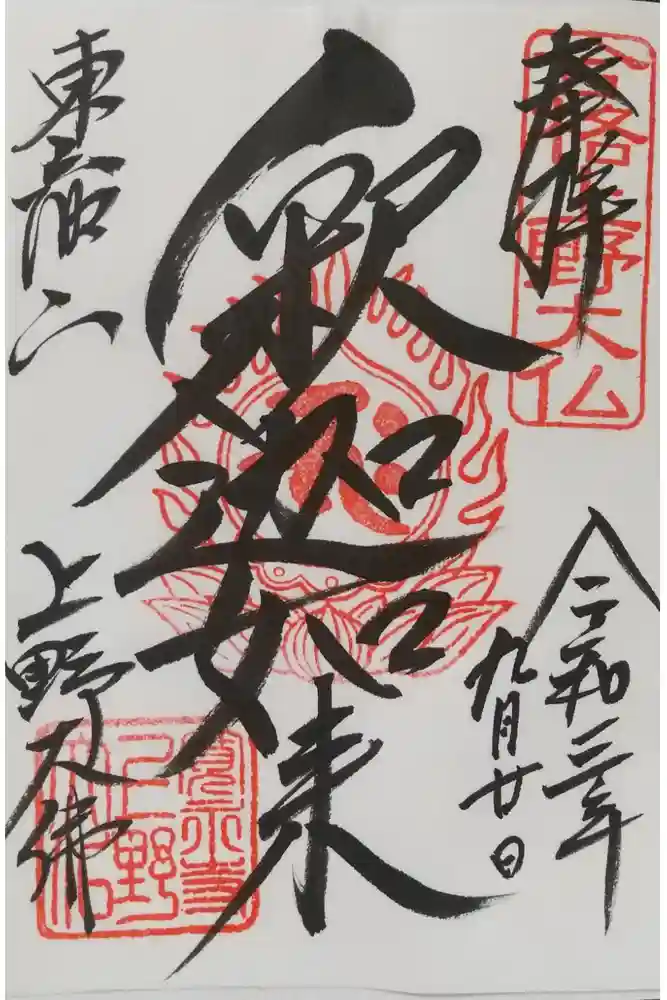 奉拝
合格上野大仏
令和三年
九月廿日
釈迦如来
東叡山
上野大佛
寛永寺
上野
大仏